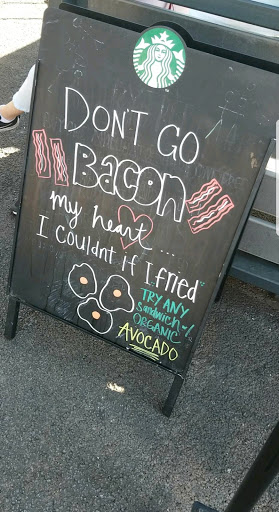 DON'T GO
BACON
my heart ...
I couldnt if I fried
TRY ANY
Sandwich w/
ORGANIC
AVOCADO